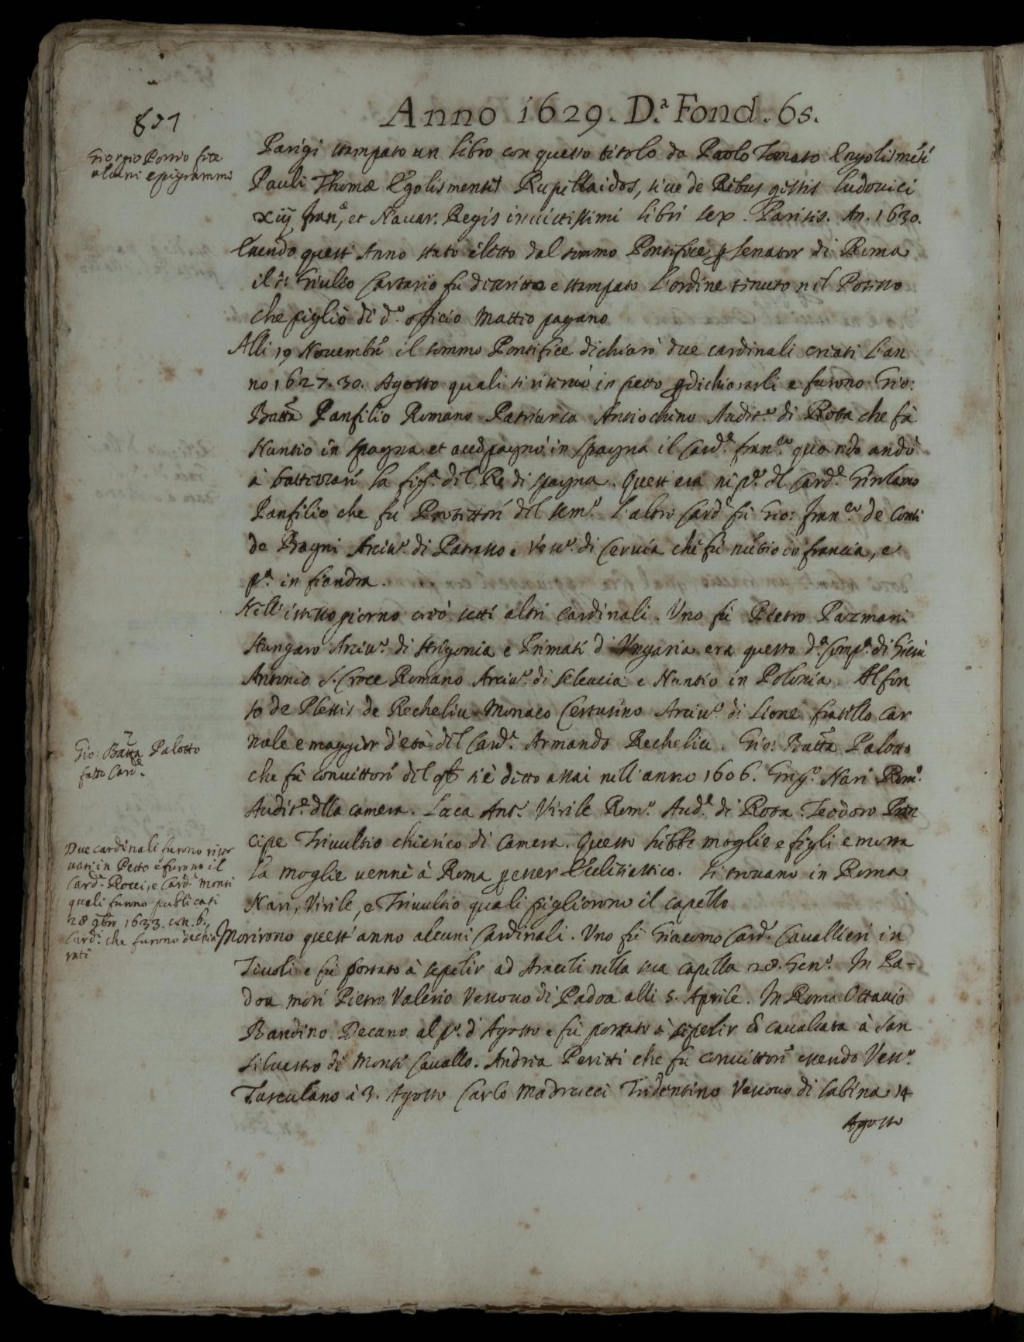 857
Anno 1629. D.ª Fond. 65.
Giorgio Porro fece
alcuni epigrammi
Parigi stampato un libro con questo titolo da Paolo Tomaso Engolismése
Pauli Thomæ Egolismensis Rupellaidos, siue de Rebus gestis ludovici
xiij, Fran.e, et Navar. Regis invictissimi libri sex. Parisis. An. 1630.
Essendo quest'Anno stato eletto dal sommo Pontifice, p senator di Roma
il s.r Giulio Cartario fù descritto e stampato l'ordine tenuto nel Possesso
che pigliò di d.o officio Mattio pagano
Alli 19 Novembrē il sommo Pontifice dichiarò due cardinali criati l'an
no 1627. 30. Agosto quali si ritennè in petto p dichiararli e furono Gio:
Batta Panfilio Romano Patriarca Antiocheno Audit.e di Rota che fù
Nuntio in spagna et accōpagnò in spagna il Card.e Fran.co quando andò
à battezzare la fig.a del Re di spagna. Quest era nip.e del Card.e Girolamo
Panfilio che fù Protettore del sem.o L'altro Card. fù Gio: Fran.co de Conti
de Bagni Arciu.o di Patrasso e Vesu.o di Cervia che fù nūtio in francia, e
p.a in fiandra.
Nell'istesso giorno creò sette altri Cardinali. Uno fù Pietro Pazmani
Hungaro Arciu.o di Strigonia e Primate d'Ungaria era questo d.a Comp.a di Giesù
Antonio S. Croce Romano Arciu.o di seleucia e Nuntio in Polonia. Alfon
so de Plessis de Rechelieu Monaco Certusino Arciu.o di Lione fratello Car
nale e maggior d'età del Card.e Armando Rechelieu. Gio: Batta Palotto
che fù convittore del qle s'è ditto assai nell'anno 1606. Greg.o Nari Rom.o
Audit.e dlla camera. Luca Ant.o Virile Rom.o Aud.e di Rota. Teodoro Prin
cipe Trivultio chierico di Camera. Questo hebbe moglie e figli e morta
la moglie uenne à Roma p esser Ecclesiastico. Si trovano in Roma
Nari, Virile, e Trivultio quali pigliorono il capello
Gio: Batta Palotto
fatto Card.e
Due cardinali furono riser
uati in Petto e furono il
Card.e Rocci, e Card.e Monti
quali furno publicati
28 9bre 1633. con. 6.
Cardi che furono dechia
rati
Morirono quest'anno alcuni Cardinali. Uno fù Giacomo Card.e Cavallieri in
Tivoli e fù portato à sepelir ad Araceli nella sua capella 28. Gen.o In Pa-
doa morì Pietro Valerio Vescovo di Padoa alli 5. Aprile. In Roma Ottavio
Bandino Decano al p.o d'Agosto e fù portato à sepelir in cavalcata à San
silvestro di Monte Cavallo. Andrea Peretti che fù convittore essendo Vesc.o
Tusculano à 3. Agosto Carlo Madrucci Tridentino Vescovo di Sabina 14
Agosto